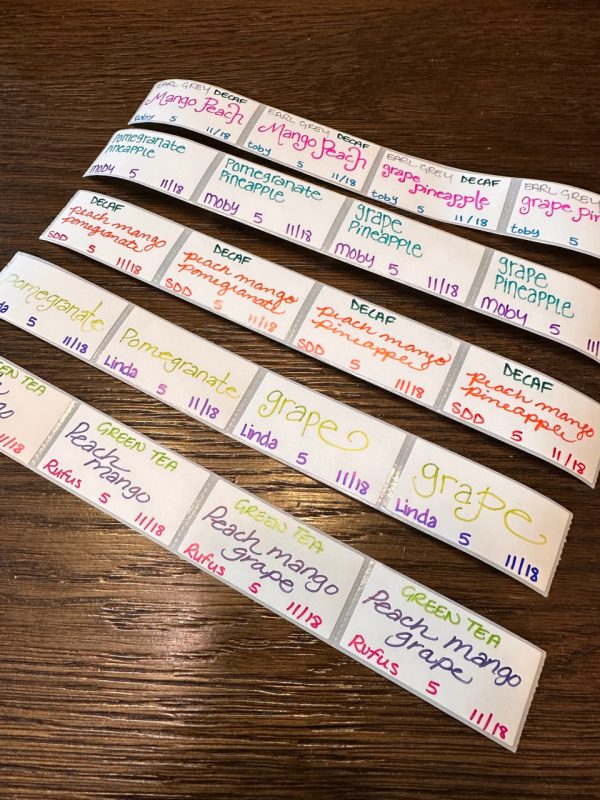 EARL GREY DECAF
Mango Peach
toby 5 11/18
EARL GREY DECAF
Mango Peach
toby 5 11/18
EARL GREY DECAF
grape pineapple
toby 5 11/18
EARL GREY
grape
toby 5
Pomegranate
Pineapple
moby 5 11/18
Pomegranate
Pineapple
moby 5 11/18
grape
Pineapple
moby 5 11/18
grape
Pineapple
moby 5
DECAF
peach mango
pomegranate
SDD 5 11/18
DECAF
peach mango
pomegranate
SDD 5 11/18
DECAF
peach mango
pineapple
SDD 5 11/18
DECAF
peach mango
pineapple
SDD 5 11/18
Pomegranate
5 11/18
Pomegranate
Linda 5 11/18
grape
Linda 5 11/18
grape
Linda 5 11/18
GREEN TEA
11/18
GREEN TEA
Peach
mango
Rufus 5 11/18
GREEN TEA
Peach mango
grape
Rufus 5 11/18
GREEN TEA
Peach mango
grape
Rufus 5 11/18